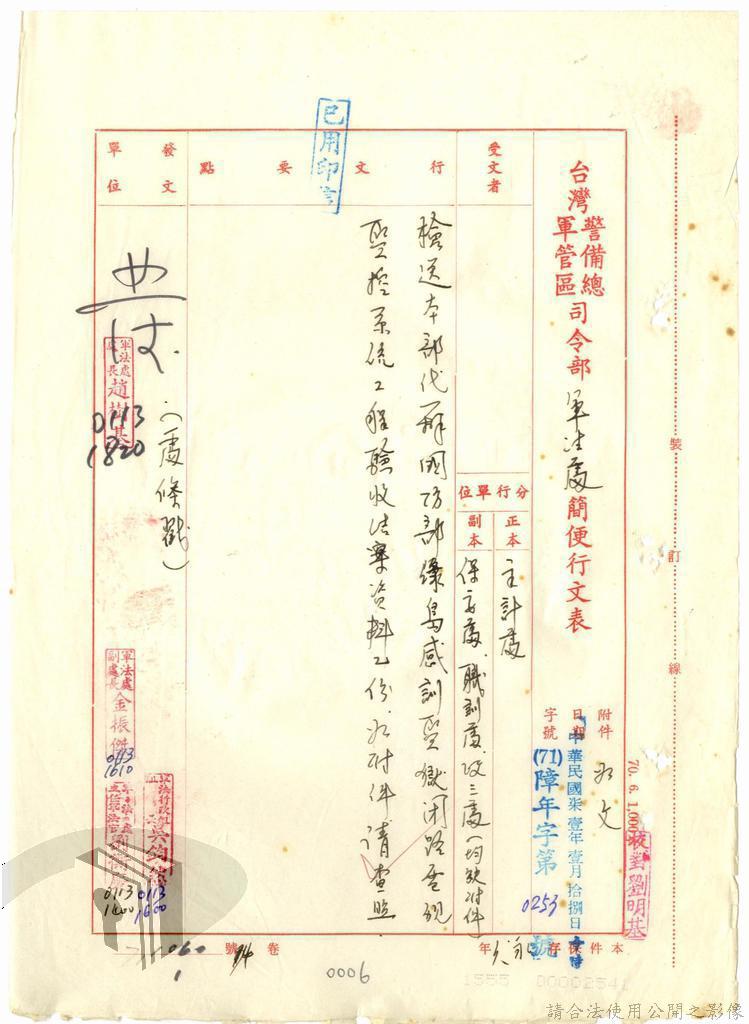 台灣警備總司令部軍法處簡便行文表
軍管區
附件
如文
日期
中華民國柒壹年壹月拾捌日
字號
(71)障年字第0253號
受文者
分行單位
正本
主計處
副本
保安處、職訓處、政三處(均缺附件)
行文要點
檢送本部代辦國防部綠島感訓監獄閉路電視
監控系統工程驗收結案資料乙份,如附件請查照.
發文單位
(處條戳)
已用印信
軍法處處長趙樹基
0113
1820
軍法處副處長金振傑
0113
1610
吳鈞
0113
1600
0113
1400
校對劉明基
70. 6. 1,000
裝
訂
線
本件保存
年
卷
號
060
1
0006
1555 00002541
請合法使用公開之影像